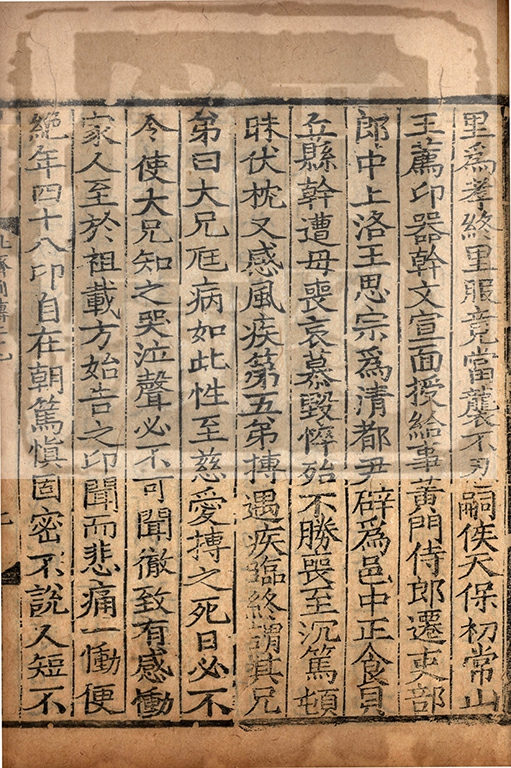 里爲孝終里服竟當襲不忍嗣侯天保初常山
王薦卭器幹文宣面授給事黃門侍郎遷吏部
郎中上洛王思宗爲清都尹辟爲邑中正食貝
丘縣幹遭母喪哀慕毀悴殆不勝喪至沉篤頓
昧伏枕又感風疾第五弟摶遇疾臨終謂其兄
弟曰大兄尫病如此性至慈愛摶之死日必不
令使大兄知之哭泣聲必不可聞徹致有感慟
家人至於祖載方始告之卭聞而悲痛一慟便
絶年四十八卭自在朝篤慎固密不說人短不